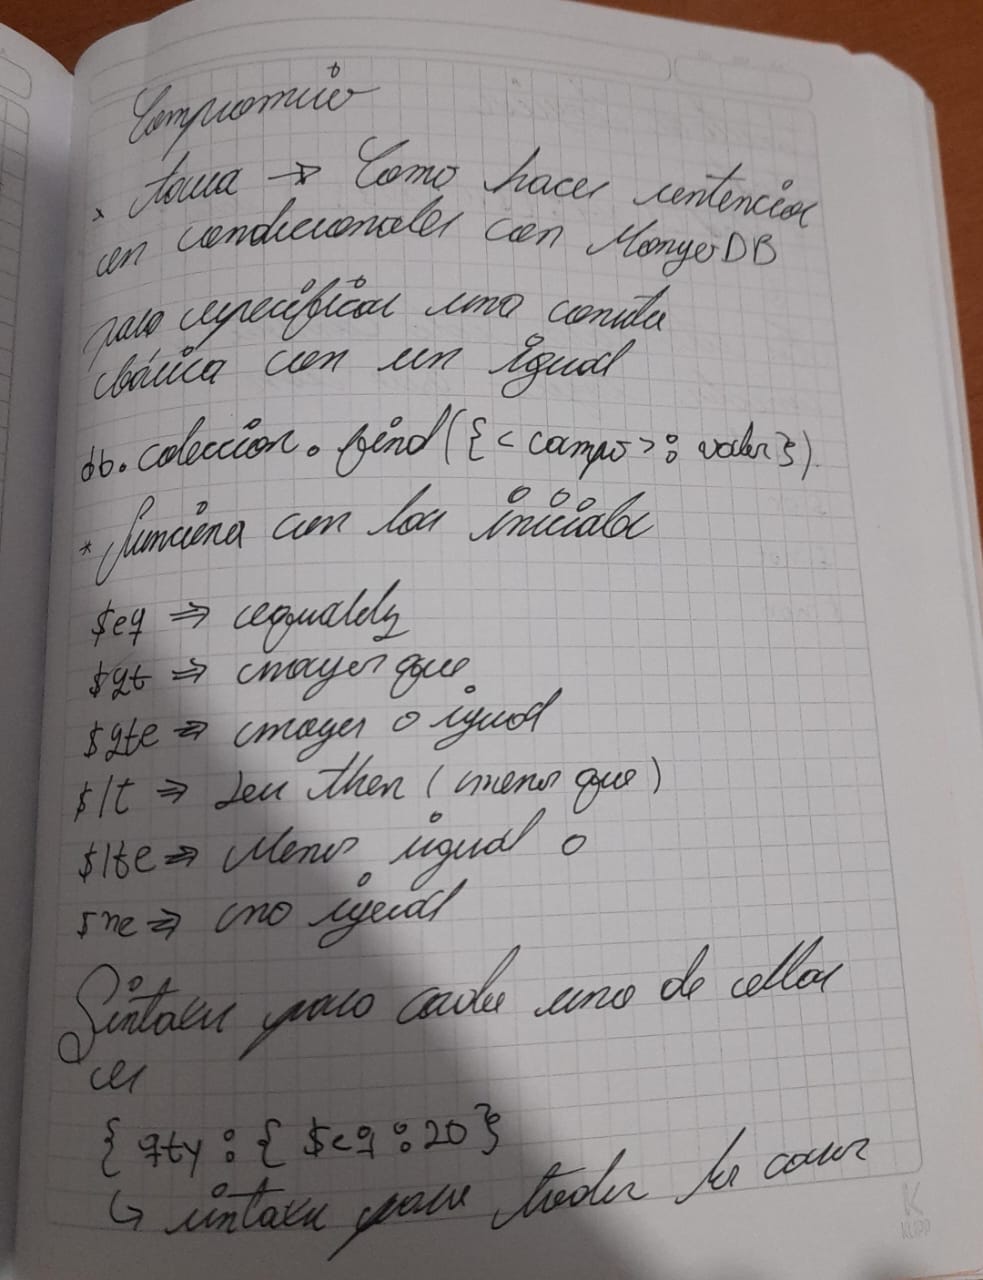 Compromiso
* tarea → Como hacer sentencias
en condicionales con MongoDB
para especificar una consulta
básica con un igual
db.coleccion.find({<campo>: valor})
* funciona con las iniciales
$eq ⇒
$gt ⇒ mayor que
$gte ⇒ mayor o igual
$lt ⇒ less then (menor que)
$lte ⇒ Menor igual o
$ne ⇒ no igual
Sintaxis para cada uno de ellos
es
{ qty : { $eq : 20 }
↳ sintaxis para todos los casos
K
KLIPP